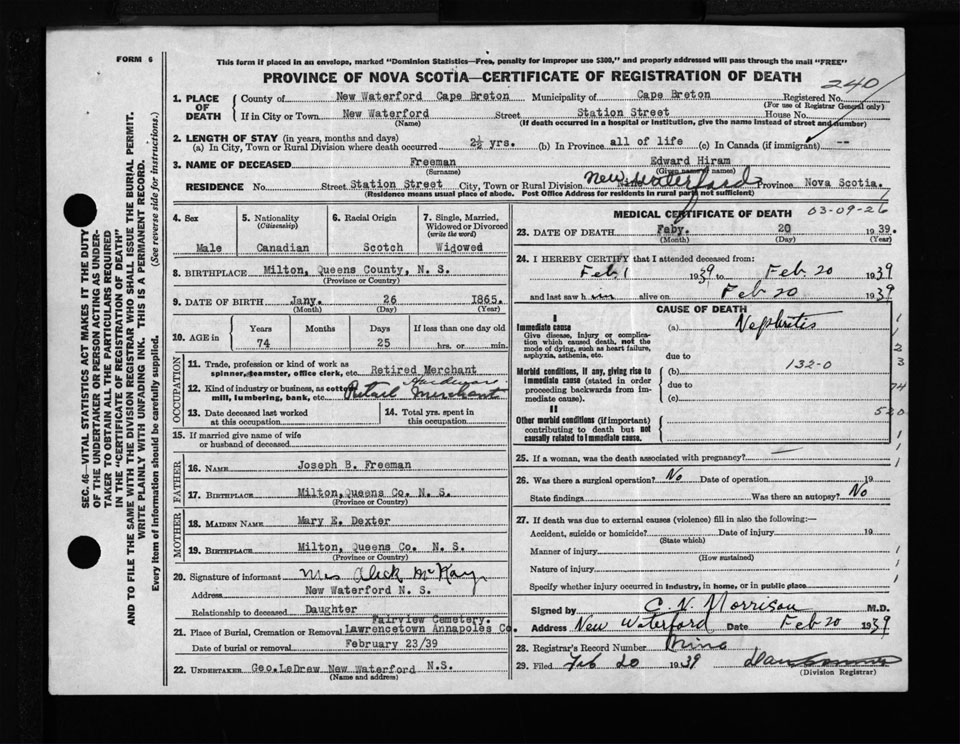 FORM 6
This form if placed in an envelope, marked "Dominion Statistics—Free, penalty for improper use $300," and properly addressed will pass through the mail "FREE"
PROVINCE OF NOVA SCOTIA—CERTIFICATE OF REGISTRATION OF DEATH
240
1. PLACE OF DEATH County of New Waterford Cape Breton Municipality of Cape Breton Registered No.
(For use of Registrar General only)
If in City or Town New Waterford Street Station Street House No.
(Name) (If death occurred in a hospital or institution, give the name instead of street and number)
2. LENGTH OF STAY (in years, months and days)
(a) In City, Town or Rural Division where death occurred 2½ yrs. (b) In Province all of life (c) In Canada (if immigrant) --
3. NAME OF DECEASED Freeman Edward Hiram
(Surname) (Given name or names)
RESIDENCE No. Street Station Street City, Town or Rural Division New Waterford Province Nova Scotia.
(Residence means usual place of abode. Post Office Address for residents in rural parts not sufficient)
4. Sex
Male
5. Nationality
(Citizenship)
Canadian
6. Racial Origin
Scotch
7. Single, Married, Widowed or Divorced
(write the word)
Widowed
8. BIRTHPLACE Milton, Queens County, N. S.
(Province or Country)
9. DATE OF BIRTH Jany. 26 1865.
(Month) (Day) (Year)
10. AGE in Years Months Days If less than one day old
74 25 hrs. or min.
OCCUPATION
11. Trade, profession or kind of work as spinner, teamster, office clerk, etc. Retired Merchant
12. Kind of industry or business, as cotton mill, lumbering, bank, etc. Retail Hardware Merchant
13. Date deceased last worked at this occupation
14. Total yrs. spent in this occupation
15. If married give name of wife or husband of deceased
FATHER
16. NAME Joseph B. Freeman
17. BIRTHPLACE Milton, Queens Co. N. S.
(Province or Country)
MOTHER
18. MAIDEN NAME Mary E. Dexter
19. BIRTHPLACE Milton, Queens Co. N. S.
(Province or Country)
20. Signature of informant Mrs Aleck McKay
Address New Waterford N. S.
Relationship to deceased Daughter
Fairview Cemetery.
21. Place of Burial, Cremation or Removal Lawrencetown Annapoles Co.
Date of burial or removal February 23/39
22. UNDERTAKER Geo. LeDrew New Waterford N.S.
(Name and address)
MEDICAL CERTIFICATE OF DEATH 03-09-26
23. DATE OF DEATH Feby. 20 1939.
(Month) (Day) (Year)
24. I HEREBY CERTIFY that I attended deceased from:
Feb 1 1939 to Feb 20 1939
and last saw h im alive on Feb 20 1939
CAUSE OF DEATH
I
Immediate cause
Give disease, injury or complication which caused death, not the mode of dying, such as heart failure, asphyxia, asthenia, etc.
(a) Nephritis
due to
Morbid conditions, if any, giving rise to immediate cause (stated in order proceeding backwards from immediate cause).
(b) 132-0
due to
(c)
II
Other morbid conditions (if important) contributing to death but not causally related to immediate cause.
1
1
2
3
74
520
1
1
1
1
1
25. If a woman, was the death associated with pregnancy? —
26. Was there a surgical operation? No Date of operation 19
State findings Was there an autopsy? No
27. If death was due to external causes (violence) fill in also the following:—
Accident, suicide or homicide? Date of injury 19
(State which)
Manner of injury
(How sustained)
Nature of injury
Specify whether injury occurred in industry, in home, or in public place
Signed by C. N. Morrison M.D.
Address New Waterford Date Feb 20 1939
28. Registrar's Record Number Nine
29. Filed Feb 20 1939
(Division Registrar)
SEC. 46—VITAL STATISTICS ACT MAKES IT THE DUTY
OF THE UNDERTAKER OR PERSON ACTING AS UNDER-
TAKER TO OBTAIN ALL THE PARTICULARS REQUIRED
IN THE "CERTIFICATE OF REGISTRATION OF DEATH"
AND TO FILE THE SAME WITH THE DIVISION REGISTRAR WHO SHALL ISSUE THE BURIAL PERMIT.
WRITE PLAINLY WITH UNFADING INK. THIS IS A PERMANENT RECORD.
Every item of information should be carefully supplied. (See reverse side for instructions.)